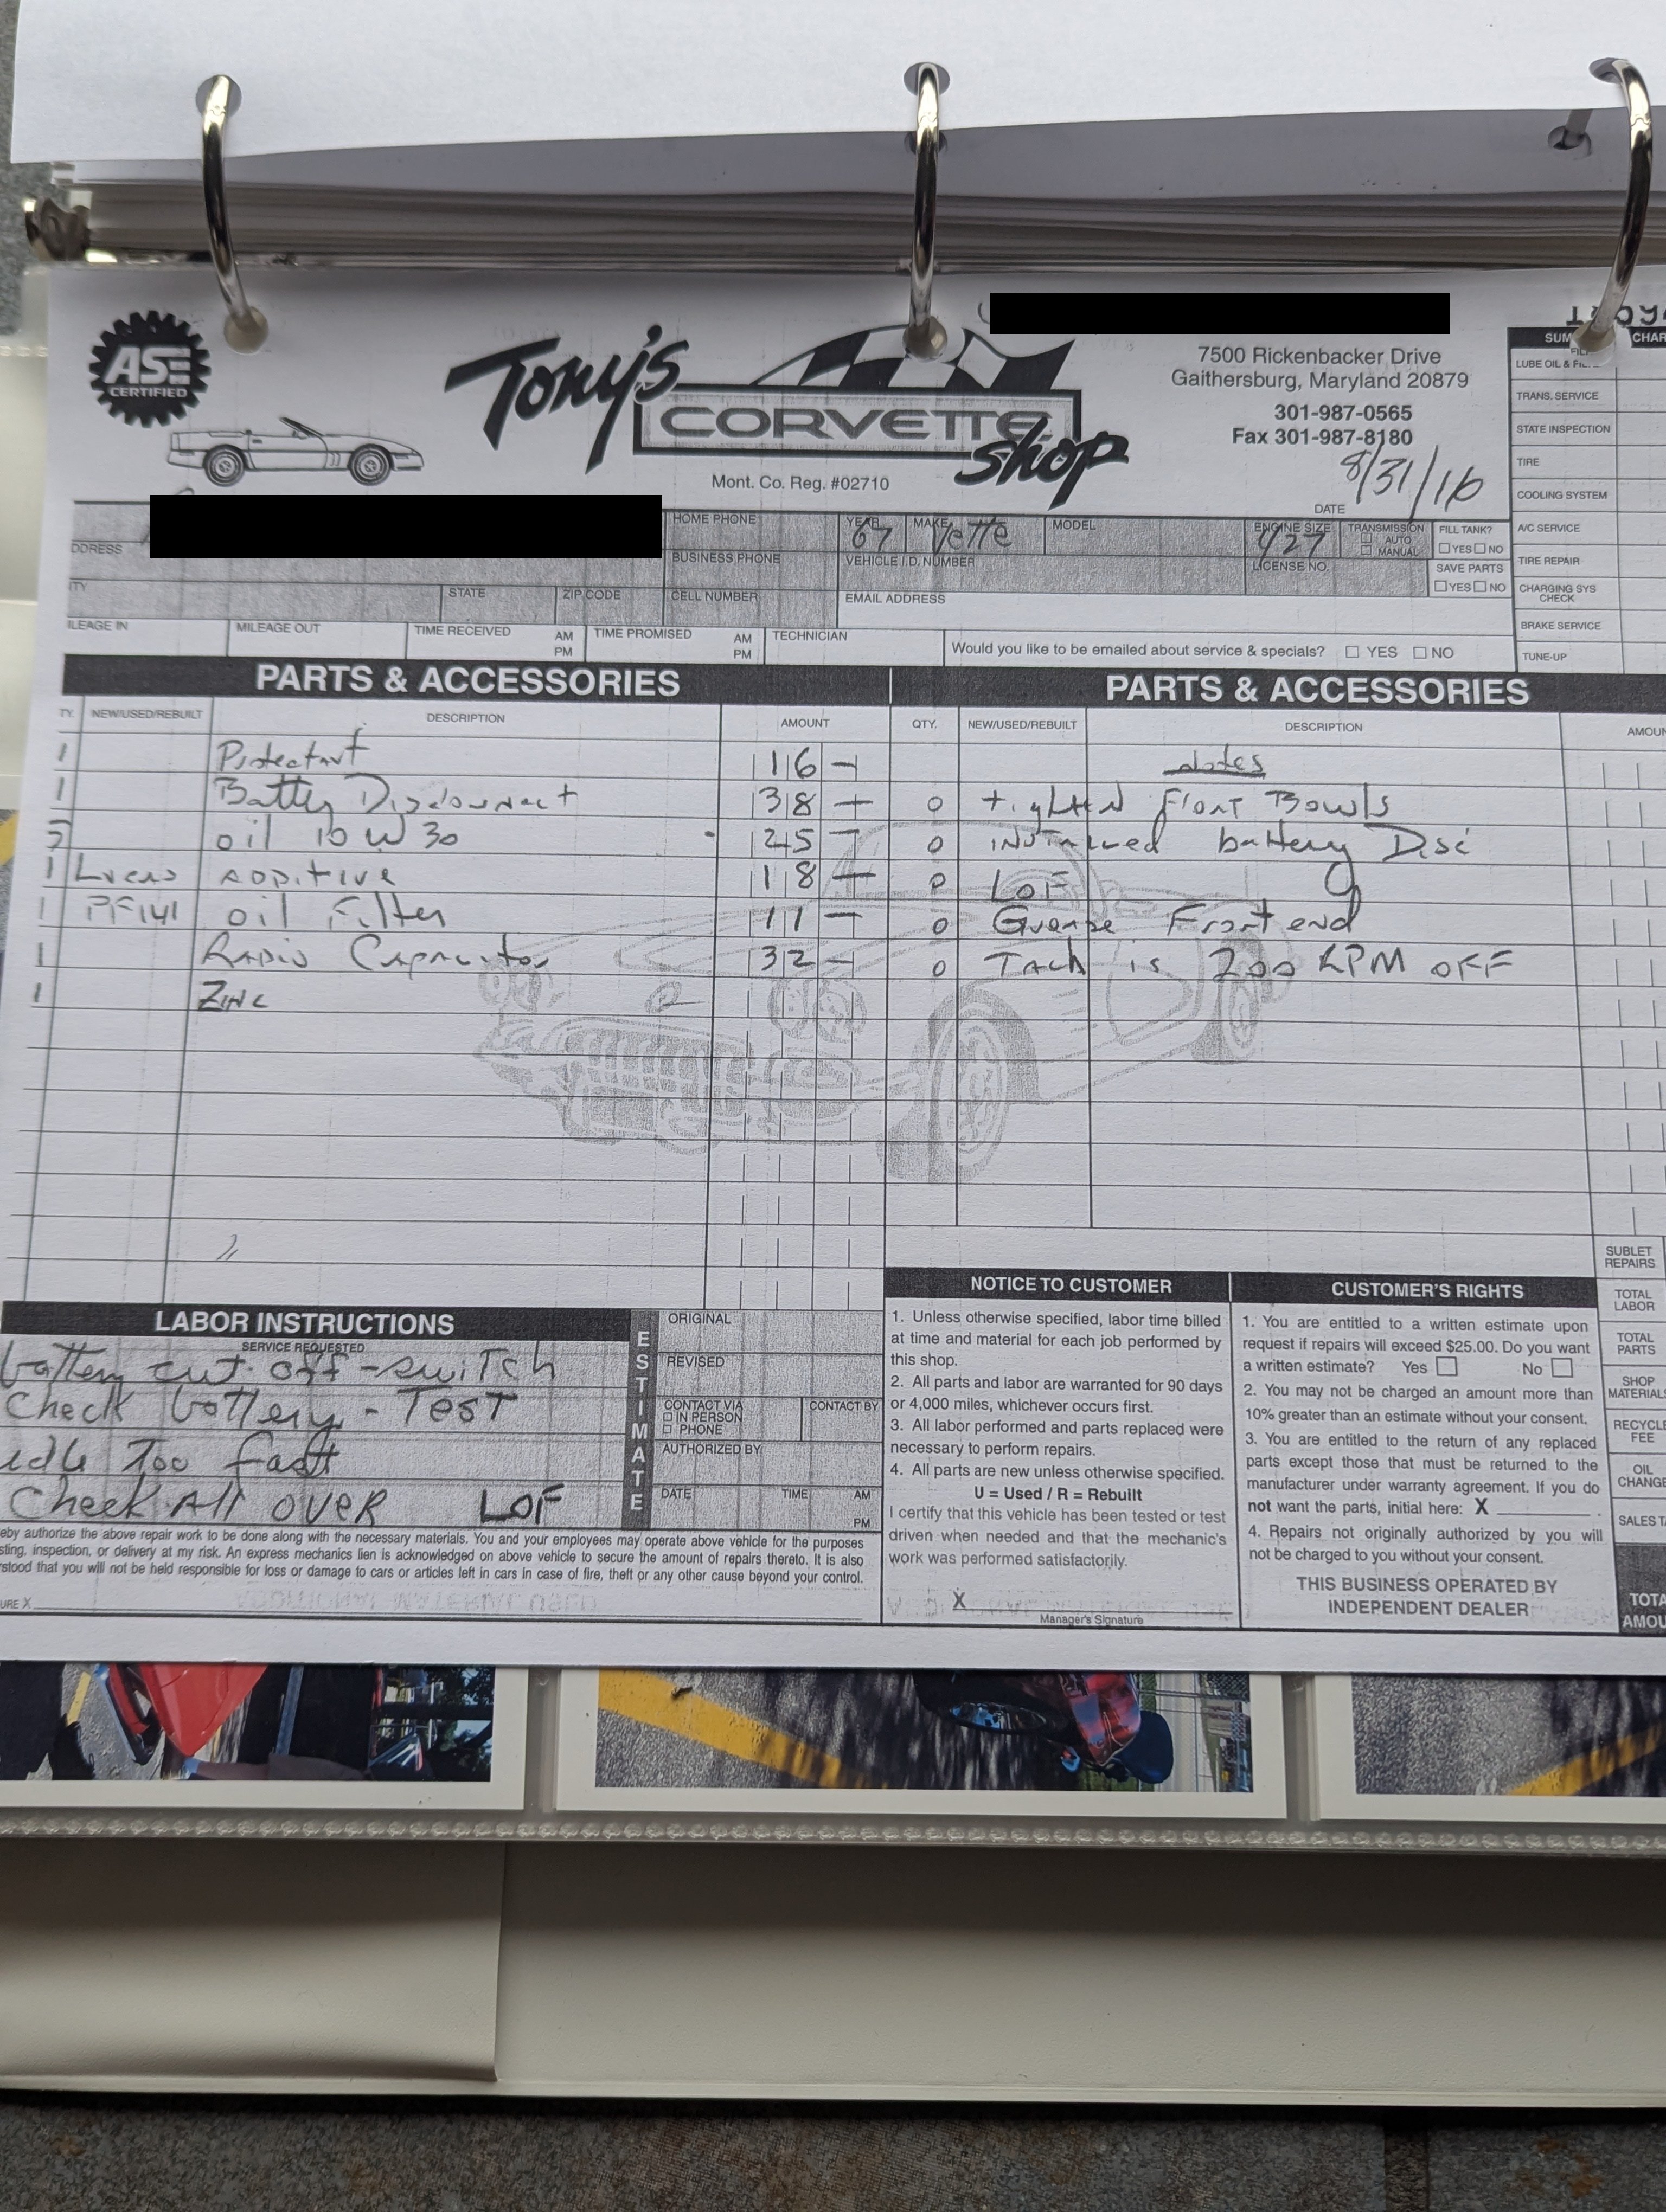 ASE
CERTIFIED
Tony's
CORVETTE
shop
Mont. Co. Reg. #02710
7500 Rickenbacker Drive
Gaithersburg, Maryland 20879
301-987-0565
Fax 301-987-8180
DATE 8/31/16
SUM CHAR
LUBE OIL & FIL
TRANS. SERVICE
STATE INSPECTION
TIRE
COOLING SYSTEM
A/C SERVICE
TIRE REPAIR
CHARGING SYS
CHECK
BRAKE SERVICE
TUNE-UP
DDRESS
HOME PHONE
BUSINESS PHONE
YEAR 67 MAKE Vette MODEL
VEHICLE I.D. NUMBER
ENGINE SIZE 427
LICENSE NO.
TRANSMISSION
AUTO
MANUAL
FILL TANK?
YES NO
SAVE PARTS
YES NO
ITY STATE ZIP CODE CELL NUMBER EMAIL ADDRESS
ILEAGE IN MILEAGE OUT TIME RECEIVED AM PM TIME PROMISED AM PM TECHNICIAN
Would you like to be emailed about service & specials? YES NO
PARTS & ACCESSORIES
TY. NEW/USED/REBUILT DESCRIPTION AMOUNT
1 Protectant 16 —
1 Battery Disconnect 38 —
5 oil 10 W 30 25 —
1 Lucas ADDitive 18 —
1 PF141 oil Filter 11 —
1 RADio Capacitor 32 —
1 Zinc
PARTS & ACCESSORIES
QTY. NEW/USED/REBUILT DESCRIPTION AMOUN
notes
o tighten Float Bowls
o installed battery Disc
o LOF
o Grease Front end
o Tach is 200 RPM OFF
LABOR INSTRUCTIONS
SERVICE REQUESTED
battery cut-off-switch
Check battery - Test
idle Too fast
Check All over LOF
ESTIMATE
ORIGINAL
REVISED
CONTACT VIA
IN PERSON
PHONE
CONTACT BY
AUTHORIZED BY
DATE TIME AM
PM
eby authorize the above repair work to be done along with the necessary materials. You and your employees may operate above vehicle for the purposes
sting, inspection, or delivery at my risk. An express mechanics lien is acknowledged on above vehicle to secure the amount of repairs thereto. It is also
stood that you will not be held responsible for loss or damage to cars or articles left in cars in case of fire, theft or any other cause beyond your control.
URE X
NOTICE TO CUSTOMER
1. Unless otherwise specified, labor time billed
at time and material for each job performed by
this shop.
2. All parts and labor are warranted for 90 days
or 4,000 miles, whichever occurs first.
3. All labor performed and parts replaced were
necessary to perform repairs.
4. All parts are new unless otherwise specified.
U = Used / R = Rebuilt
I certify that this vehicle has been tested or test
driven when needed and that the mechanic's
work was performed satisfactorily.
X
Manager's Signature
CUSTOMER'S RIGHTS
1. You are entitled to a written estimate upon
request if repairs will exceed $25.00. Do you want
a written estimate? Yes No
2. You may not be charged an amount more than
10% greater than an estimate without your consent.
3. You are entitled to the return of any replaced
parts except those that must be returned to the
manufacturer under warranty agreement. If you do
not want the parts, initial here: X
4. Repairs not originally authorized by you will
not be charged to you without your consent.
THIS BUSINESS OPERATED BY
INDEPENDENT DEALER
SUBLET
REPAIRS
TOTAL
LABOR
TOTAL
PARTS
SHOP
MATERIALS
RECYCLE
FEE
OIL
CHANGE
SALES TA
TOTA
AMOU